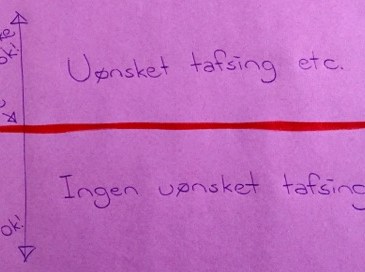 Uønsket tafsing etc.
Ingen uønsket tafsing
ok!
ok!